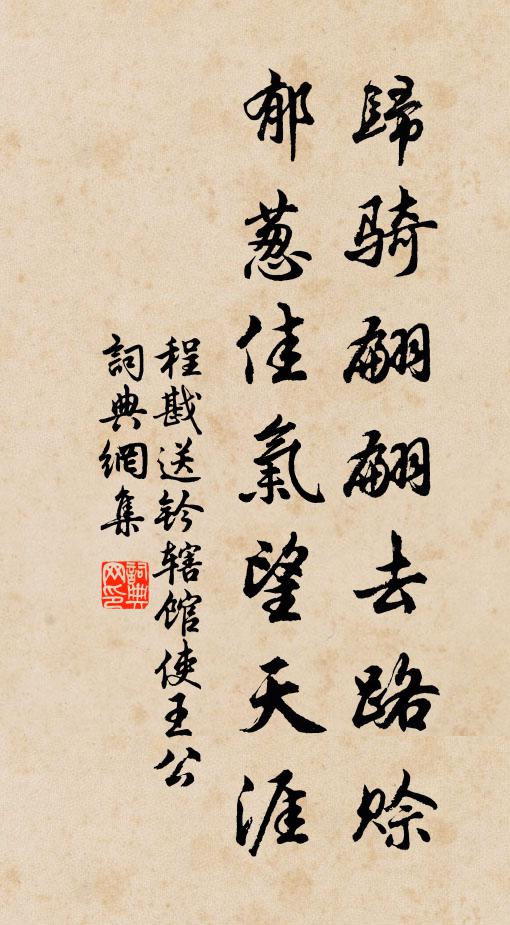 歸騎翩翩去路賒
郁蔥佳氣望天涯
程戡送鈐辖館使王公
詞典網集
詞典网印